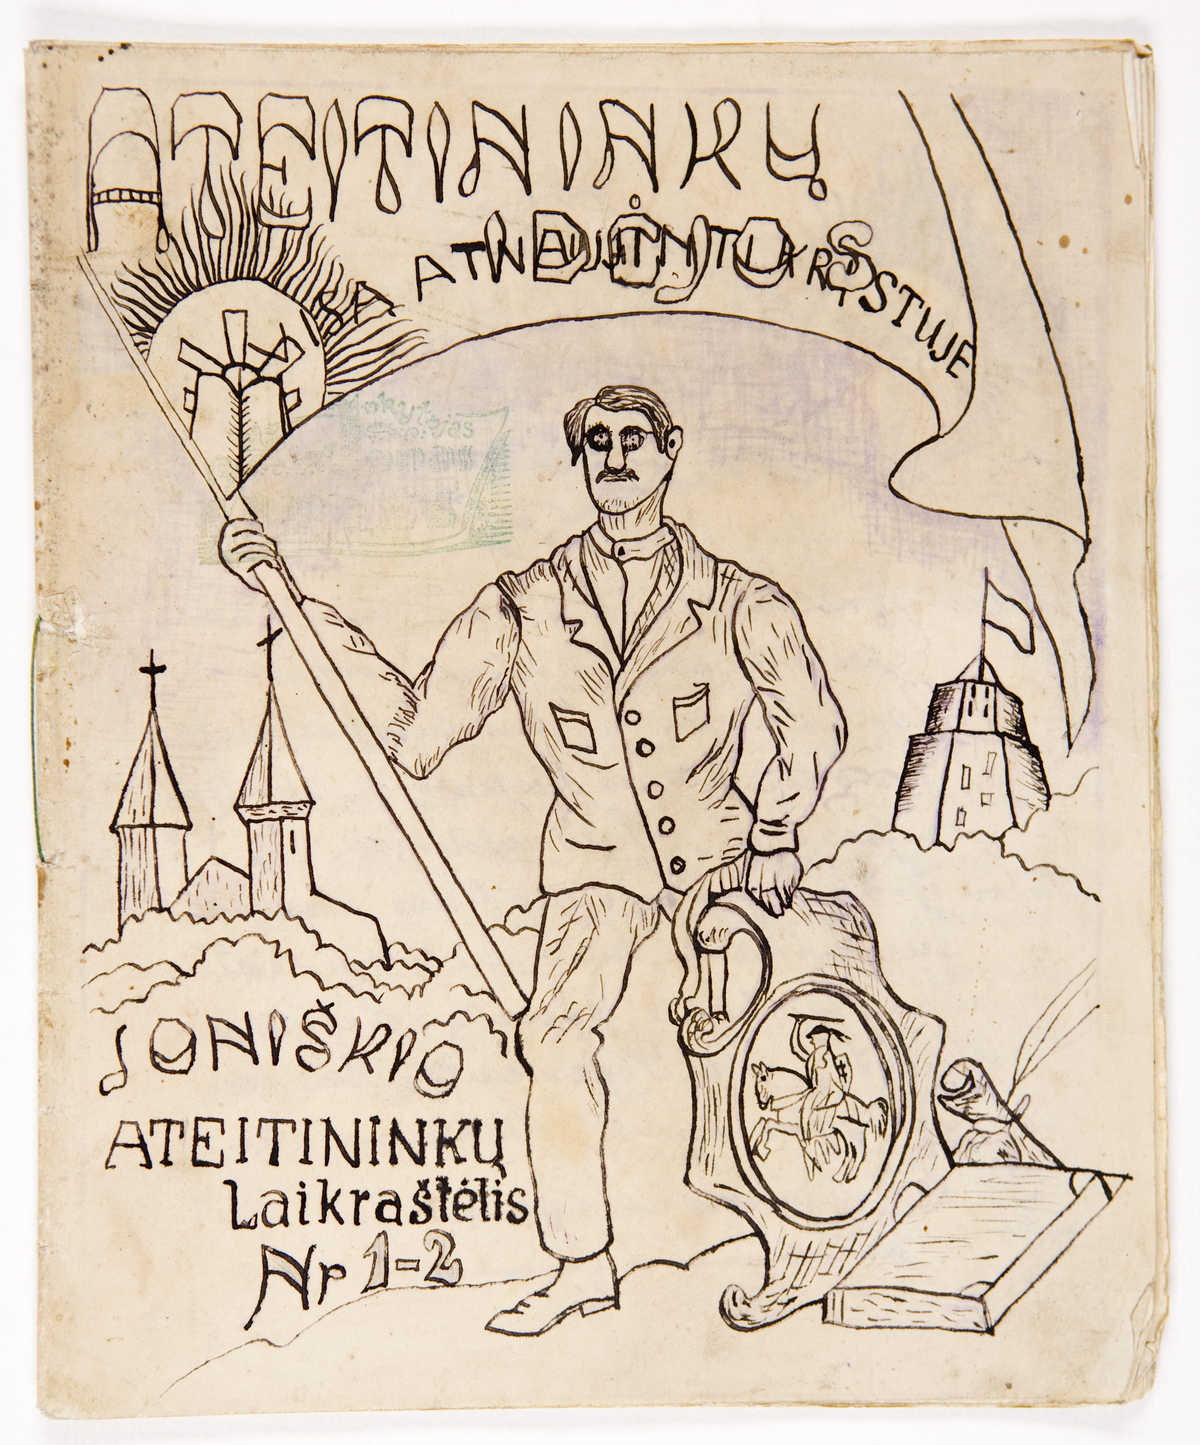 ATEITININKŲ
VISA ATNAUJINTI KRISTUJE
JONIŠKIO
ATEITININKŲ
Laikraštėlis
Nr 1-2